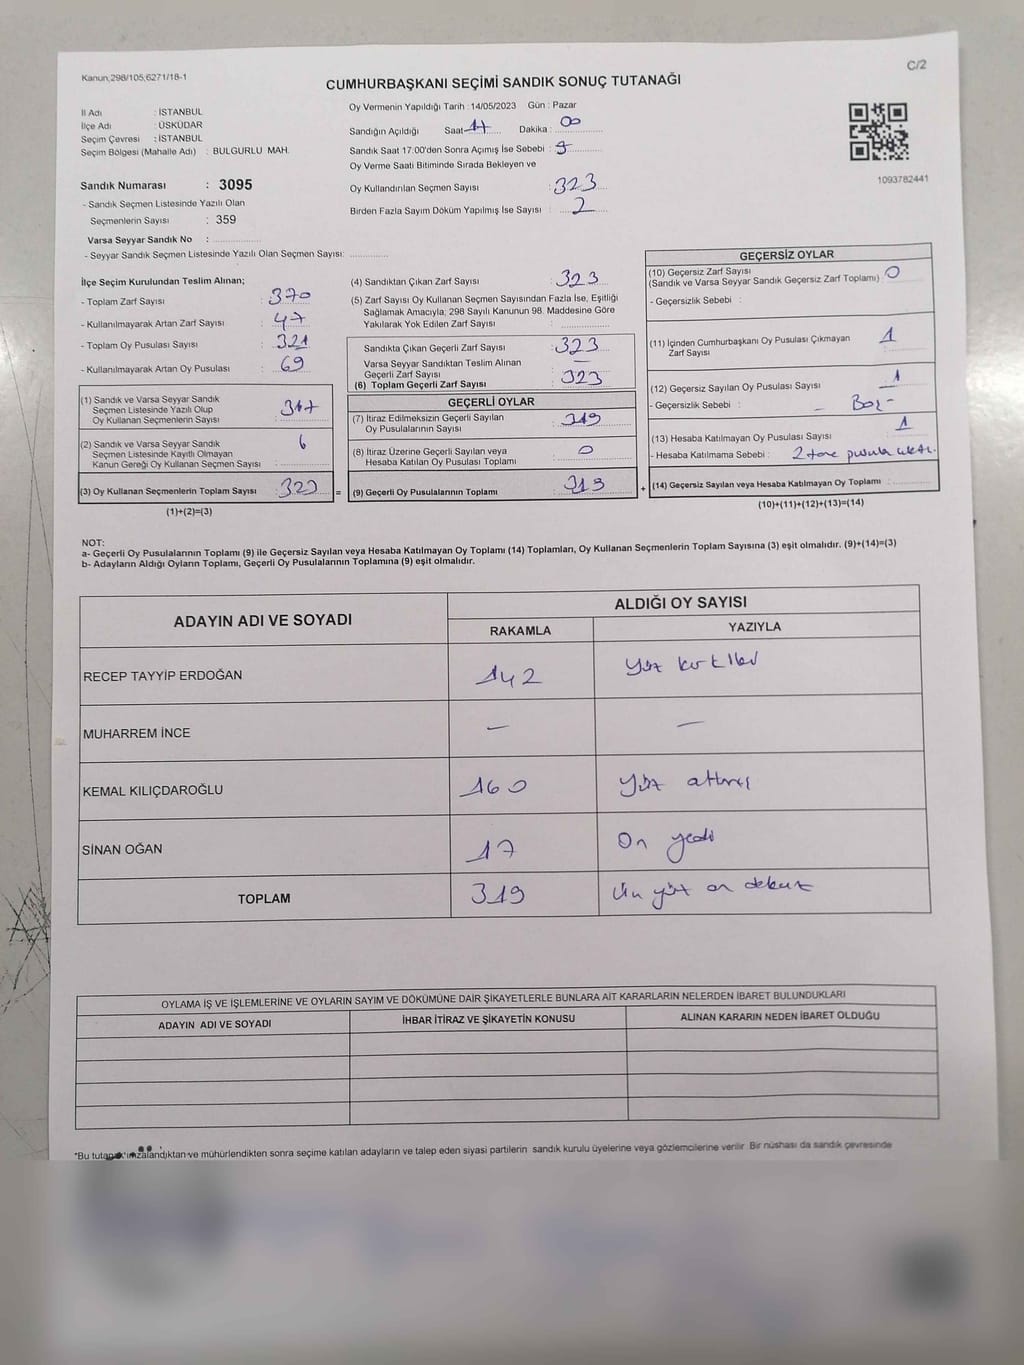 Kanun;298/105,6271/18-1
C/2
CUMHURBAŞKANI SEÇİMİ SANDIK SONUÇ TUTANAĞI
İl Adı : İSTANBUL
İlçe Adı : ÜSKÜDAR
Seçim Çevresi : İSTANBUL
Seçim Bölgesi (Mahalle Adı) : BULGURLU MAH.
Sandık Numarası : 3095
- Sandık Seçmen Listesinde Yazılı Olan
Seçmenlerin Sayısı : 359
Varsa Seyyar Sandık No :
- Seyyar Sandık Seçmen Listesinde Yazılı Olan Seçmen Sayısı:
Oy Vermenin Yapıldığı Tarih :14/05/2023 Gün : Pazar
Sandığın Açıldığı Saat 17 Dakika : 00
Sandık Saat 17:00'den Sonra Açımış İse Sebebi :
Oy Verme Saati Bitiminde Sırada Bekleyen ve
Oy Kullandırılan Seçmen Sayısı : 323
Birden Fazla Sayım Döküm Yapılmış İse Sayısı : 2
1093782441
İlçe Seçim Kurulundan Teslim Alınan;
- Toplam Zarf Sayısı : 370
- Kullanılmayarak Artan Zarf Sayısı : 47
- Toplam Oy Pusulası Sayısı :
- Kullanılmayarak Artan Oy Pusulası : 69
(1) Sandık ve Varsa Seyyar Sandık
Seçmen Listesinde Yazılı Olup
Oy Kullanan Seçmenlerin Sayısı : 317
(2) Sandık ve Varsa Seyyar Sandık
Seçmen Listesinde Kayıtlı Olmayan
Kanun Gereği Oy Kullanan Seçmen Sayısı : 6
(3) Oy Kullanan Seçmenlerin Toplam Sayısı : 323
(1)+(2)=(3)
=
(4) Sandıktan Çıkan Zarf Sayısı : 323
(5) Zarf Sayısı Oy Kullanan Seçmen Sayısından Fazla İse, Eşitliği
Sağlamak Amacıyla; 298 Sayılı Kanunun 98. Maddesine Göre
Yakılarak Yok Edilen Zarf Sayısı :
Sandıkta Çıkan Geçerli Zarf Sayısı : 323
Varsa Seyyar Sandıktan Teslim Alınan
Geçerli Zarf Sayısı : —
(6) Toplam Geçerli Zarf Sayısı : 323
GEÇERLİ OYLAR
(7) İtiraz Edilmeksizin Geçerli Sayılan
Oy Pusulalarının Sayısı : 319
(8) İtiraz Üzerine Geçerli Sayılan veya
Hesaba Katılan Oy Pusulası Toplamı : 0
(9) Geçerli Oy Pusulalarının Toplamı : 319
+
GEÇERSİZ OYLAR
(10) Geçersiz Zarf Sayısı
(Sandık ve Varsa Seyyar Sandık Geçersiz Zarf Toplamı) : 0
- Geçersizlik Sebebi :
(11) İçinden Cumhurbaşkanı Oy Pusulası Çıkmayan
Zarf Sayısı : 1
(12) Geçersiz Sayılan Oy Pusulası Sayısı : 1
- Geçersizlik Sebebi : - Boş -
(13) Hesaba Katılmayan Oy Pusulası Sayısı : 1
- Hesaba Katılmama Sebebi : 2 tane pusula çıktı.
(14) Geçersiz Sayılan veya Hesaba Katılmayan Oy Toplamı :
(10)+(11)+(12)+(13)=(14)
NOT:
a- Geçerli Oy Pusulalarının Toplamı (9) ile Geçersiz Sayılan veya Hesaba Katılmayan Oy Toplamı (14) Toplamları, Oy Kullanan Seçmenlerin Toplam Sayısına (3) eşit olmalıdır. (9)+(14)=(3)
b- Adayların Aldığı Oyların Toplamı, Geçerli Oy Pusulalarının Toplamına (9) eşit olmalıdır.
ADAYIN ADI VE SOYADI ALDIĞI OY SAYISI
RAKAMLA YAZIYLA
RECEP TAYYİP ERDOĞAN 142 Yüz kırk iki
MUHARREM İNCE — —
KEMAL KILIÇDAROĞLU 160 Yüz altmış
SİNAN OĞAN 17 On yedi
TOPLAM 319 Üç yüz on dokuz
OYLAMA İŞ VE İŞLEMLERİNE VE OYLARIN SAYIM VE DÖKÜMÜNE DAİR ŞİKAYETLERLE BUNLARA AİT KARARLARIN NELERDEN İBARET BULUNDUKLARI
ADAYIN ADI VE SOYADI İHBAR İTİRAZ VE ŞİKAYETİN KONUSU ALINAN KARARIN NEDEN İBARET OLDUĞU
*Bu tutanak imzalandıktan ve mühürlendikten sonra seçime katılan adayların ve talep eden siyasi partilerin sandık kurulu üyelerine veya gözlemcilerine verilir. Bir nüshası da sandık çevresinde